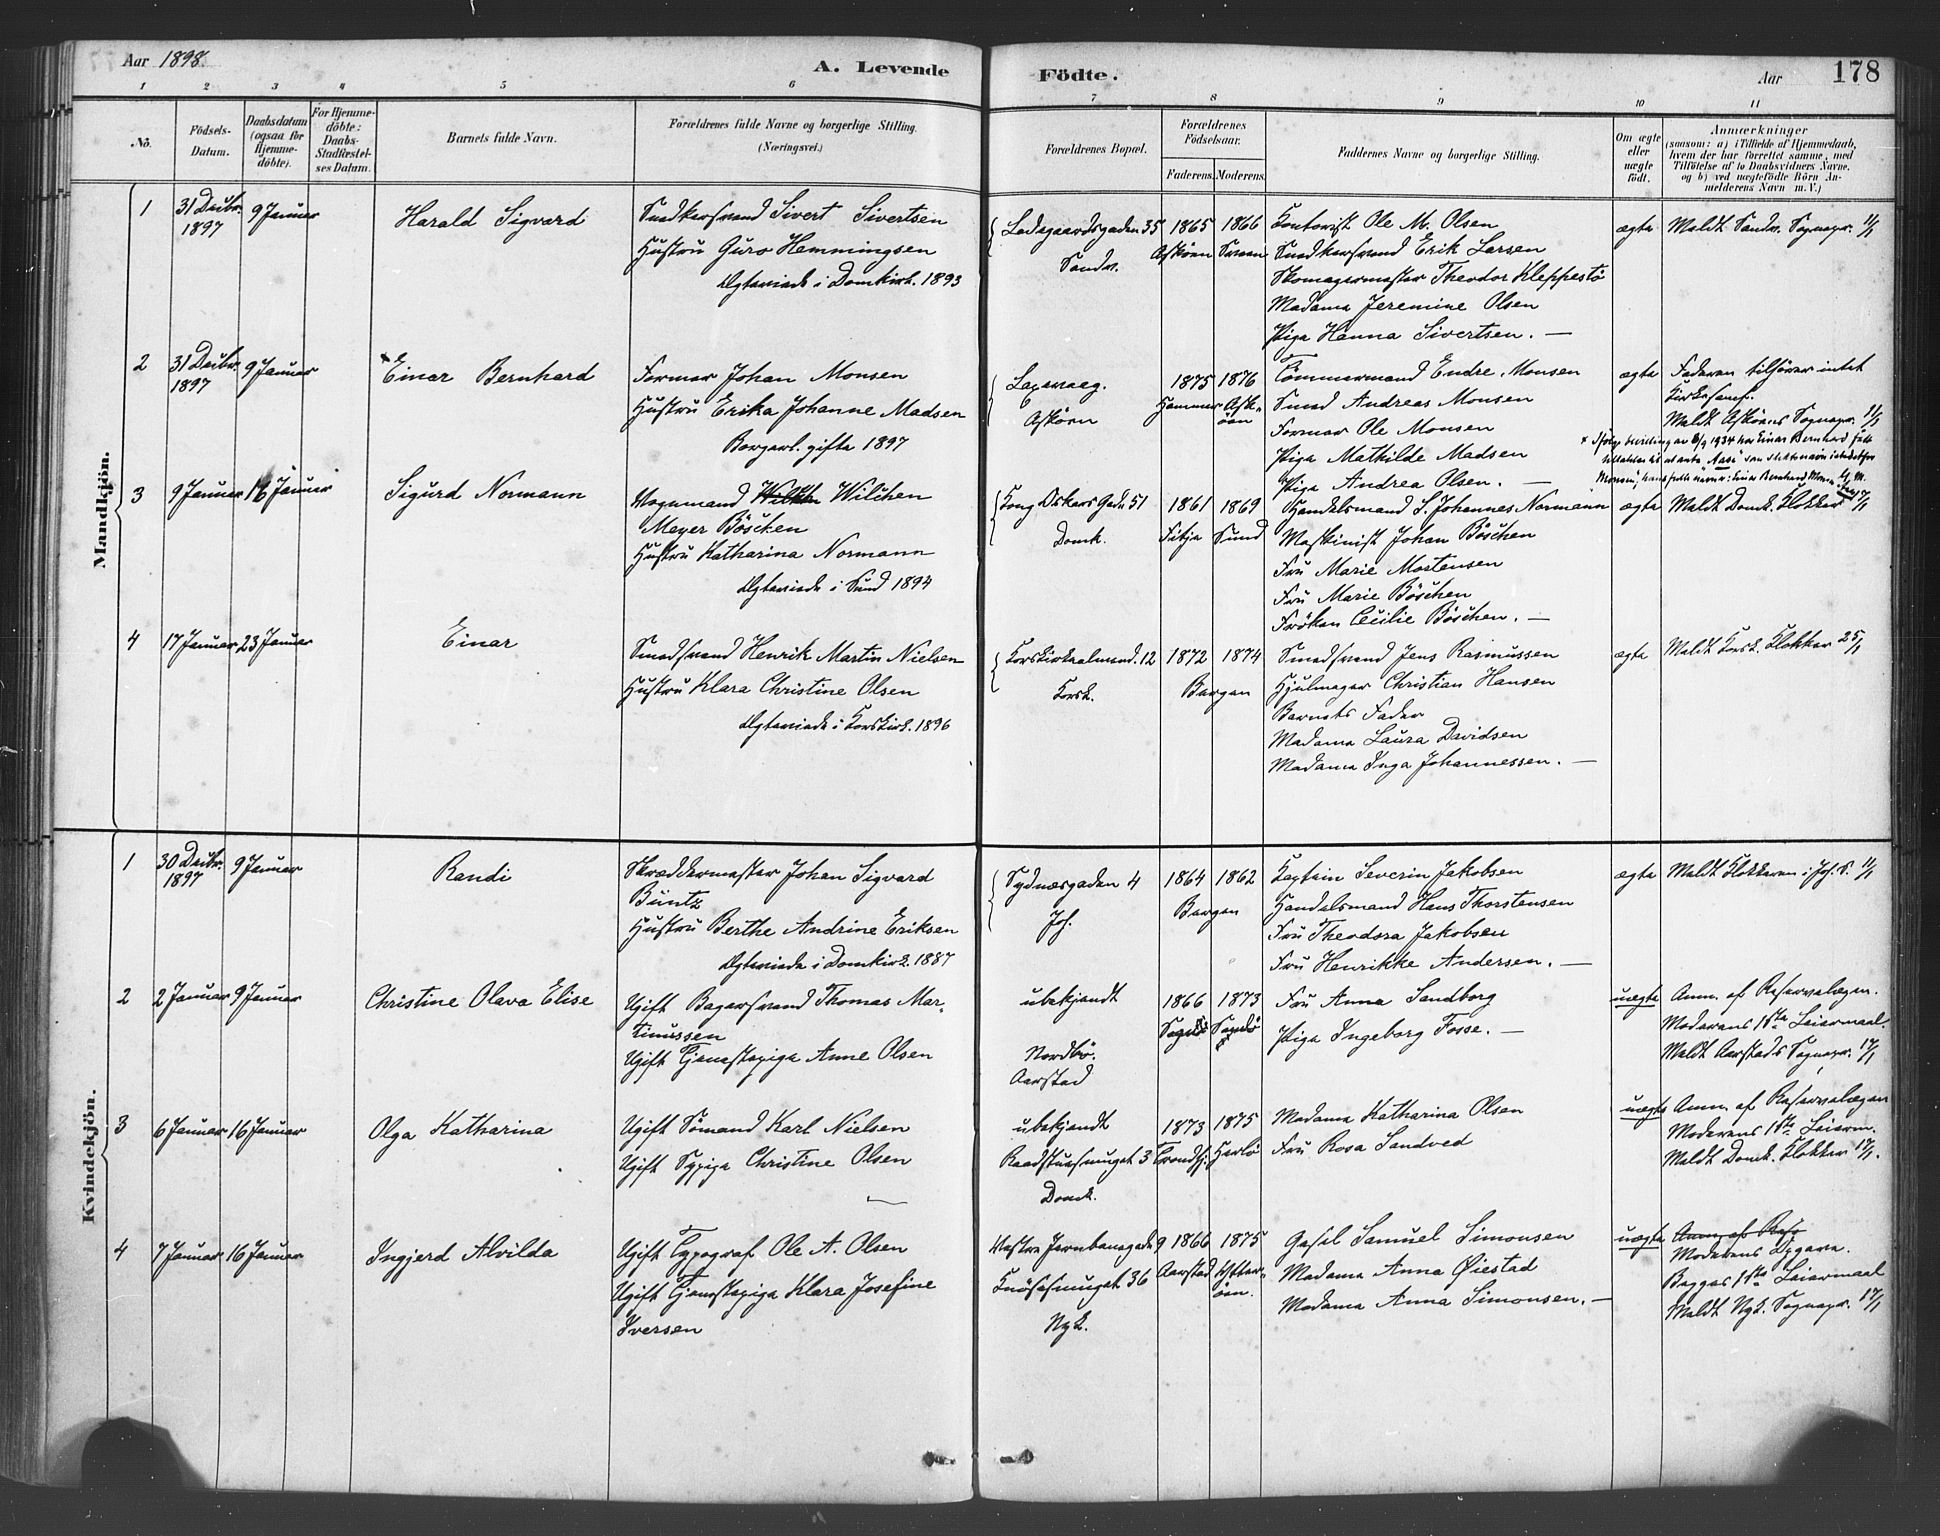 Aar 1898.
A. Levende Födte.
Aar
178
1 2 3 4 5 6 7 8 9 10 11
No.
Födsels-Datum.
Daabsdatum (ogsaa for Hjemme-döbte).
For Hjemme-döbte: Daabs-Stadfæstel-ses Datum.
Barnets fulde Navn.
Forældrenes fulde Navne og borgerlige Stilling. (Næringsvei.)
Forældrenes Bopæl.
Forældrenes Födselsaar.
Faderens. Moderens.
Faddernes Navne og borgerlige Stilling.
Om ægte eller uægte födt.
Anmærkninger
(saasom: a) i Tilfælde af Hjemmedaab, hvem der har forrettet samme, med Tilföielse af to Daabsvidners Navne. og b) ved uægtefödte Börn An-melderens Navn m. V.)
Mandkjön.
1
31 Decbr. 1897
9 Januar
Harald Sigvard
Snedkersvend Sivert Sivertsen
Hustru Guro Hemmingsen
Ægteviede i Domkirk. 1893
Ladegaardsgaden 35
Sandv.
1865 1866
Askøen
Kontorist Ole M. Olsen
Snedkersvend Erik Larsen
Skomagermester Theodor Kleppestø
Madame Jeremine Olsen
Pige Hanna Sivertsen. —
ægte
Meldt Sandv. Sognepr. 11/1
2
31 Decbr. 1897
9 Januar
× Einar Bernhard
Former Johan Monsen
Hustru Erika Johanne Madsen
Borgerl. gifte 1897
Laxevaag.
Askøen
1875 1876
Hammer Ask-øen
Tømmermand Endre Monsen
Smed Andreas Monsen
Former Ole Monsen
Pige Mathilde Madsen
Pige Andrea Olsen. —
ægte
Faderen tilhører intet
Kirkesamf.
Meldt Askøens Sognepr. 11/1
× Ifølge bevilling av 6/9 1934 har Einar Bernhard fått
tillatelse til at anta "Aase" som slektsnavn istedetfor
Monsen, hans fulde navn er: Einar Bernhard
3
9 Januar
16 Januar
Sigurd Normann
Vognmand Wilchen
Meyer Böschen
Hustru Katharina Normann
Ægteviede i Sund 1894
Kong Oskars Gade 51
Domk.
1861 1869
Fitje Sund
Handelsmand S. Johannes Normann
Maskinist Johan Böschen
Fru Marie Mortensen
Fru Marie Böschen
Frøken Cecilie Böschen. —
ægte
Meldt Domk. Klokker 17/1
4
17 Januar
23 Januar
Einar
Smedsvend Henrik Martin Nielsen
Hustru Klara Christine Olsen
Ægteviede i Korskirk. 1896
Korskirkealmend. 12
Korsk.
1872 1874
Bergen
Smedsvend Jens Rasmussen
Hjulmager Christian Hansen
Barnets Fader
Madame Laura Davidsen
Madame Inga Johannessen. —
ægte
Meldt Korsk. Klokker 25/1
Kvindekjön.
1
30 Decbr. 1897
9 Januar
Randi
Skræddermester Johan Sigvard
Büntz
Hustru Berthe Andrine Eriksen
Ægteviede i Domkirk. 1887
Sydnæsgaden 4
Joh.
1864 1862
Bergen
Kaptein Severin Jakobsen
Handelsmand Hans Thorstensen
Fru Theodora Jakobsen
Fru Henrikke Andersen. —
ægte
Meldt Klokkeren i Joh. S. 11/1
2
2 Januar
9 Januar
Christine Olava Elise
Ugift Bagersvend Thomas Mar-
tinussen
Ugift Tjenestepige Anne Olsen
ubekjendt
Nordbø.
Aarstad
1866 1873
Fru Anna Sandborg
Pige Ingeborg Fosse. —
uægte
Anm. af Reservelægen.
Moderens 1ste Leiermaal.
Meldt Aarstads Sognepr. 17/1
3
6 Januar
16 Januar
Olga Katharina
Ugift Sømand Karl Nielsen
Ugift Sypige Christine Olsen
ubekjendt
Raadstuesmuget 3
Domk.
1873 1875
Trondhj. Herlø
Madame Katharina Olsen
Fru Rosa Sandved
uægte
Anm. af Reservelægen
Moderens 1ste Leierm.
Meldt Domk. Klokker 17/1.
4
7 Januar
16 Januar
Ingjerd Alvilda
Ugift Typograf Ole A. Olsen
Ugift Tjenestepige Klara Josefine
Iversen
Vestre Jernbanegade 9
Knøsesmuget 36
Nyk.
1866 1875
Aarstad Ytter-øen.
Gesel Samuel Simonsen
Madame Anna Øiestad
Madame Anna Simonsen. —
uægte
Anm. af Res
Moderens Opgave.
Begges 1ste Leiermaal
Meldt Nyk. Sognepr. 17/1